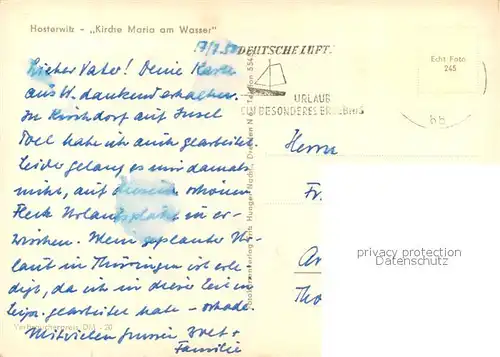 Hosterwitz - „Kirche Maria am Wasser"
Lieber Vater! Deine Karte
aus W. dankend erhalten.
In Kirchdorf auf Insel
Poel habe ich auch gearbeitet.
Leider gelang es mir damals
nicht, auf diesem schönen
Fleck Urlaubsplätze zu er-
wischen. Mein geplanter Ur-
laub in Thüringen ist erle-
digt, da ich in dieser Zeit in
Leipz. gearbeitet habe - schade.
Mit vielen Grüssen +
Familie
Verbraucherpreis DM -.20
DEUTSCHE LUFT
URLAUB
EIN BESONDERES ERLEBNIS
Echt Foto
245
Herrn
Fr
Ar
Tho
privacy protection
Datenschutz